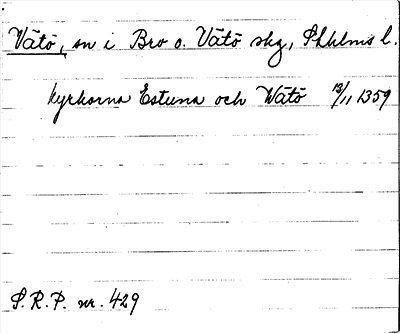 Vätö, sn i Bro o. Vätö skg, Sthlms l.
kyrkorna Estuna och Wätö 13/11 1359
S.R.P. nr. 429